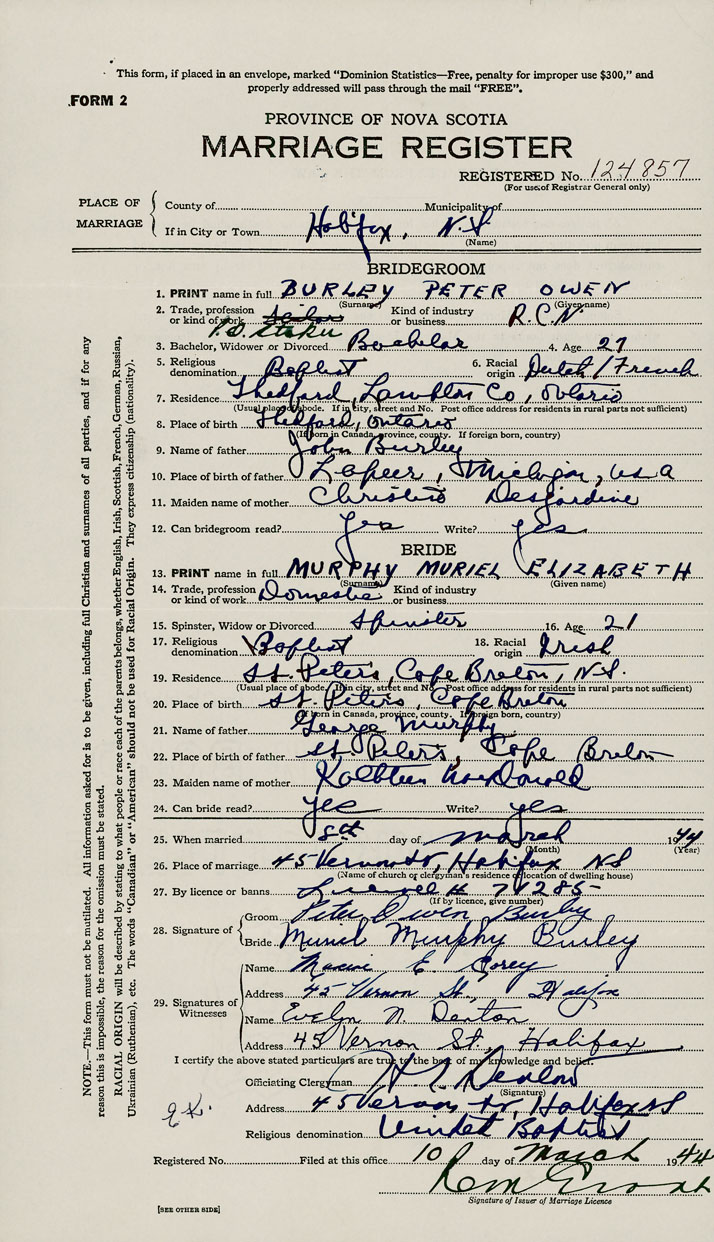 This form, if placed in an envelope, marked “Dominion Statistics—Free, penalty for improper use $300,” and
properly addressed will pass through the mail “FREE”.
FORM 2
PROVINCE OF NOVA SCOTIA
MARRIAGE REGISTER
REGISTERED No. 124857
(For use of Registrar General only)
PLACE OF MARRIAGE
County of Municipality of
If in City or Town Halifax, N.S
(Name)
BRIDEGROOM
1. PRINT name in full BURLEY PETER OWEN
(Surname) (Given name)
2. Trade, profession or kind of work Kind of industry or business R.C.N.
3. Bachelor, Widower or Divorced Bachelor 4. Age 27
5. Religious denomination Baptist 6. Racial origin Dutch/French
7. Residence Thedford, Lambton Co, Ontario
(Usual place of abode. If in city, street and No. Post office address for residents in rural parts not sufficient)
8. Place of birth Thedford, Ontario
(If born in Canada, province, county. If foreign born, country)
9. Name of father John Burley
10. Place of birth of father Lapeer, Michigan, USA
11. Maiden name of mother Christine Desjardine
12. Can bridegroom read? Yes Write? yes
BRIDE
13. PRINT name in full MURPHY MURIEL ELIZABETH
(Surname) (Given name)
14. Trade, profession or kind of work Domestic Kind of industry or business
15. Spinster, Widow or Divorced Spinster 16. Age 21
17. Religious denomination Baptist 18. Racial origin Irish
19. Residence St. Peters, Cape Breton, N.S.
(Usual place of abode. If in city, street and No. Post office address for residents in rural parts not sufficient)
20. Place of birth St. Peters, Cape Breton
(If born in Canada, province, county. If foreign born, country)
21. Name of father George Murphy
22. Place of birth of father St. Peters, Cape Breton
23. Maiden name of mother Kathleen MacDonald
24. Can bride read? yes Write? yes
25. When married 8th day of March 1944
(Month) (Year)
26. Place of marriage 45 Vernon St, Halifax NS
(Name of church or clergyman's residence or location of dwelling house)
27. By licence or banns License # 71285
(If by licence, give number)
28. Signature of
Groom Peter Owen Burley
Bride Muriel Murphy Burley
29. Signatures of Witnesses
Name E. Corey
Address 45 Vernon St., Halifax
Name Evelyn N. Denton
Address 45 Vernon St., Halifax
I certify the above stated particulars are true to the best of my knowledge and belief.
Officiating Clergyman
(Signature)
Address 45 Vernon St, Halifax NS
Religious denomination United Baptist
Registered No. Filed at this office 10 day of March 1944
Signature of Issuer of Marriage Licence
[SEE OTHER SIDE]
NOTE.—This form must not be mutilated. All information asked for is to be given, including full Christian and surnames of all parties, and if for any
reason this is impossible, the reason for the omission must be stated.
RACIAL ORIGIN will be described by stating to what people or race each of the parents belongs, whether English, Irish, Scottish, French, German, Russian,
Ukrainian (Ruthenian), etc. The words “Canadian” or “American” should not be used for Racial Origin. They express citizenship (nationality).